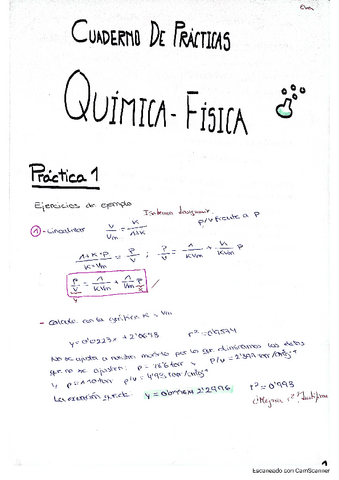 CUADERNO DE PRÁCTICAS
QUÍMICA-FÍSICA
Práctica 1
Ejercicios de ejemplo
Isoterma Langmuir
① -Linealizar V/Vm = K/1+K p/V frente a p
1+K·p/K·Vm = p/V ; p/V = 1/KVm + K/KVm p
p/V = 1/KVm + 1/Vm p
y x
- Calcular con la gráfica K y Vm
y = 0'0223x + 2'0698 r² = 0'9574
No se ajusta a nuestro modelo por lo que eliminamos los datos
que no se ajusten: p = y p/V =
y p = y p/V =
La ecuación queda: y = 2'2996 r² = 0'998
¿Mejora r²? Justifica
1
Escaneado con CamScanner